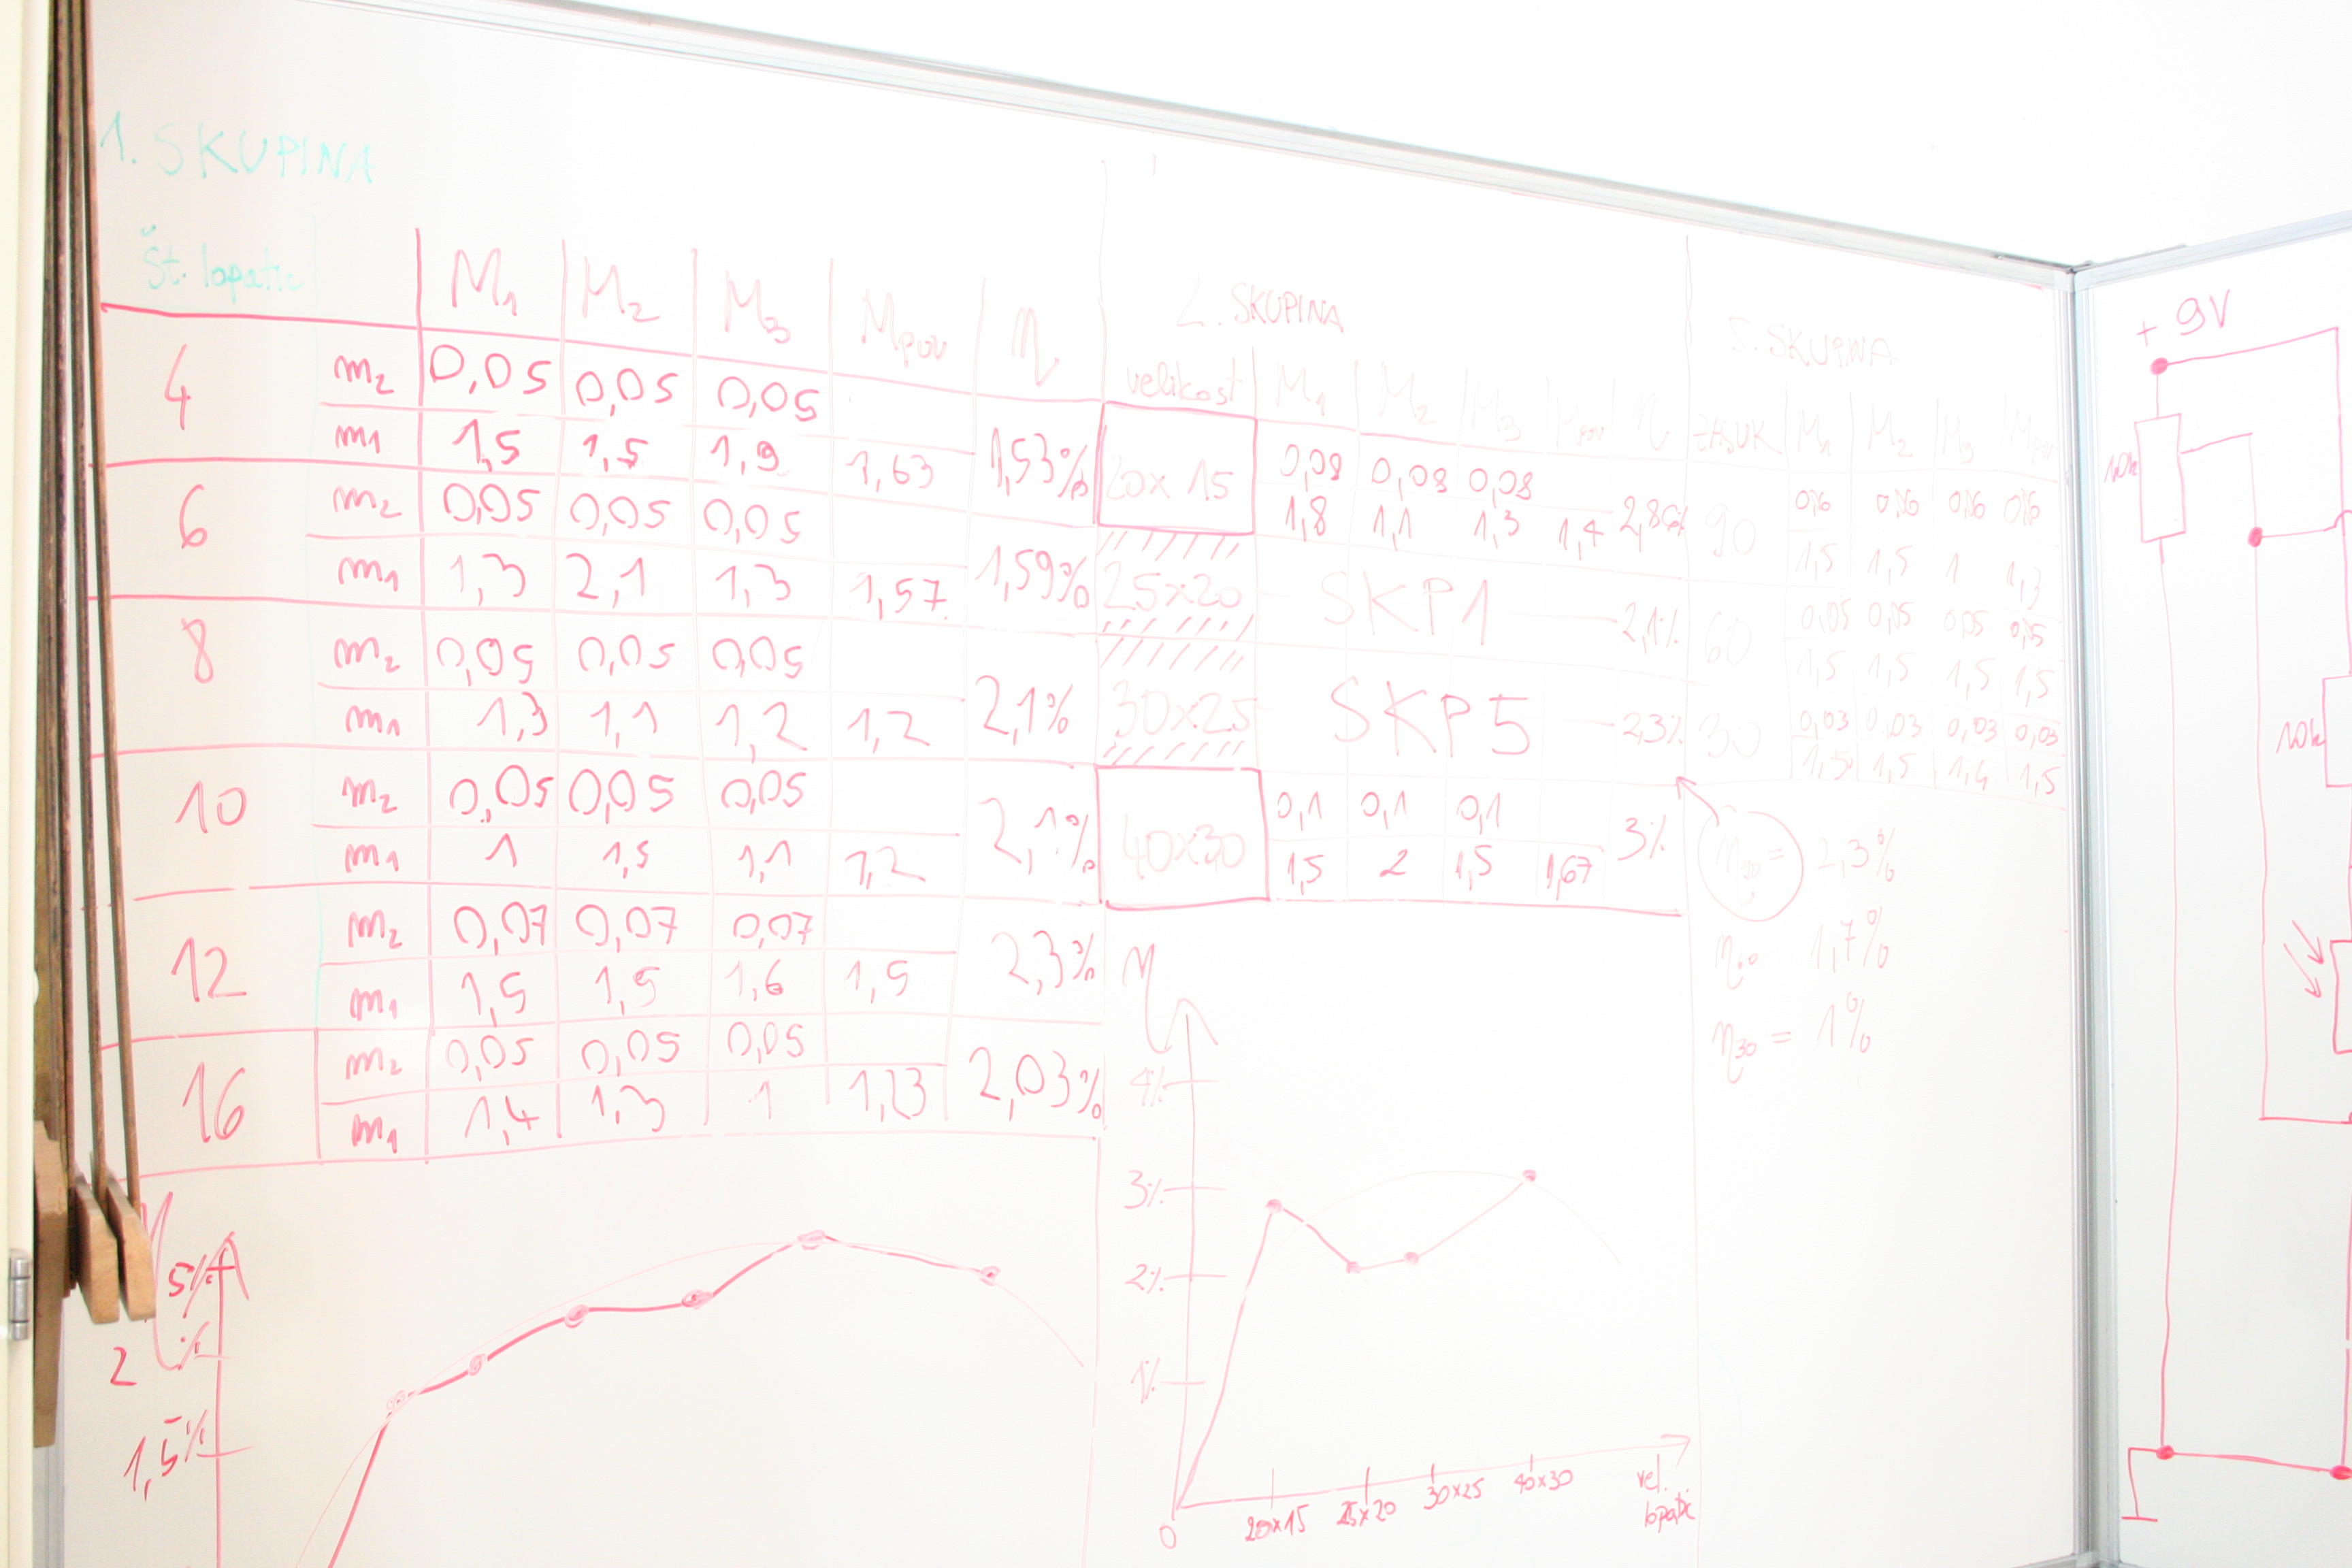 1. SKUPINA
Št. lopatic M₁ M₂ M₃ Mpov η
4 m₂ 0,05 0,05 0,05
m₁ 1,5 1,5 1,9 1,63 1,53%
6 m₂ 0,05 0,05 0,05
m₁ 1,3 2,1 1,3 1,57 1,59%
8 m₂ 0,05 0,05 0,05
m₁ 1,3 1,1 1,2 1,2 2,1%
10 m₂ 0,05 0,05 0,05
m₁ 1 1,5 1,1 1,2 2,1%
12 m₂ 0,07 0,07 0,07
m₁ 1,5 1,5 1,6 1,5 2,3%
16 m₂ 0,05 0,05 0,05
m₁ 1,4 1,3 1 1,23 2,03%
η
5%
2
1,5%
2. SKUPINA
velikost M₁ M₂ M₃ Mpov η
20x15 0,08 0,08 0,08
1,8 1,1 1,3 1,4 2,86%
25x20 SKP1 2,1%
30x25 SKP5 2,3%
40x30 0,1 0,1 0,1
1,5 2 1,5 1,67 3%
η
4%
3%
2%
1%
0
20x15 25x20 30x25 40x30 vel. lopatic
5. SKUPINA
ZASUK M₁ M₂ M₃ Mpov
90 0,06 0,06 0,06 0,06
1,5 1,5 1 1,3
60 0,05 0,05 0,05 0,05
1,5 1,5 1,5 1,5
30 0,03 0,03 0,03 0,03
1,5 1,5 1,4 1,5
η₉₀ = 2,3%
η₆₀ 1,7%
η₃₀ = 1%
+ 9V
10k
10k